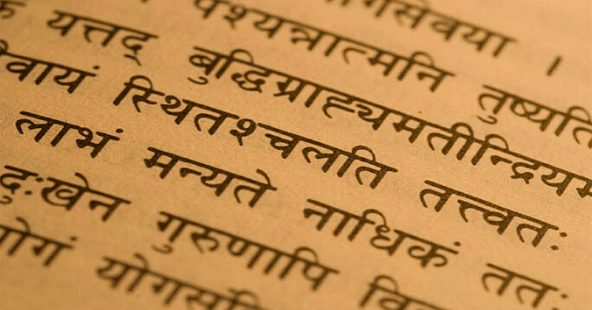 गसेवया ।
पश्यन्नात्मनि तुष्यति
यत्तद् बुद्धिग्राह्यमतीन्द्रियम
वायं स्थितश्चलति तत्त्वतः
लाभं मन्यते नाधिकं ततः
दुःखेन गुरुणापि वि
गं योगस